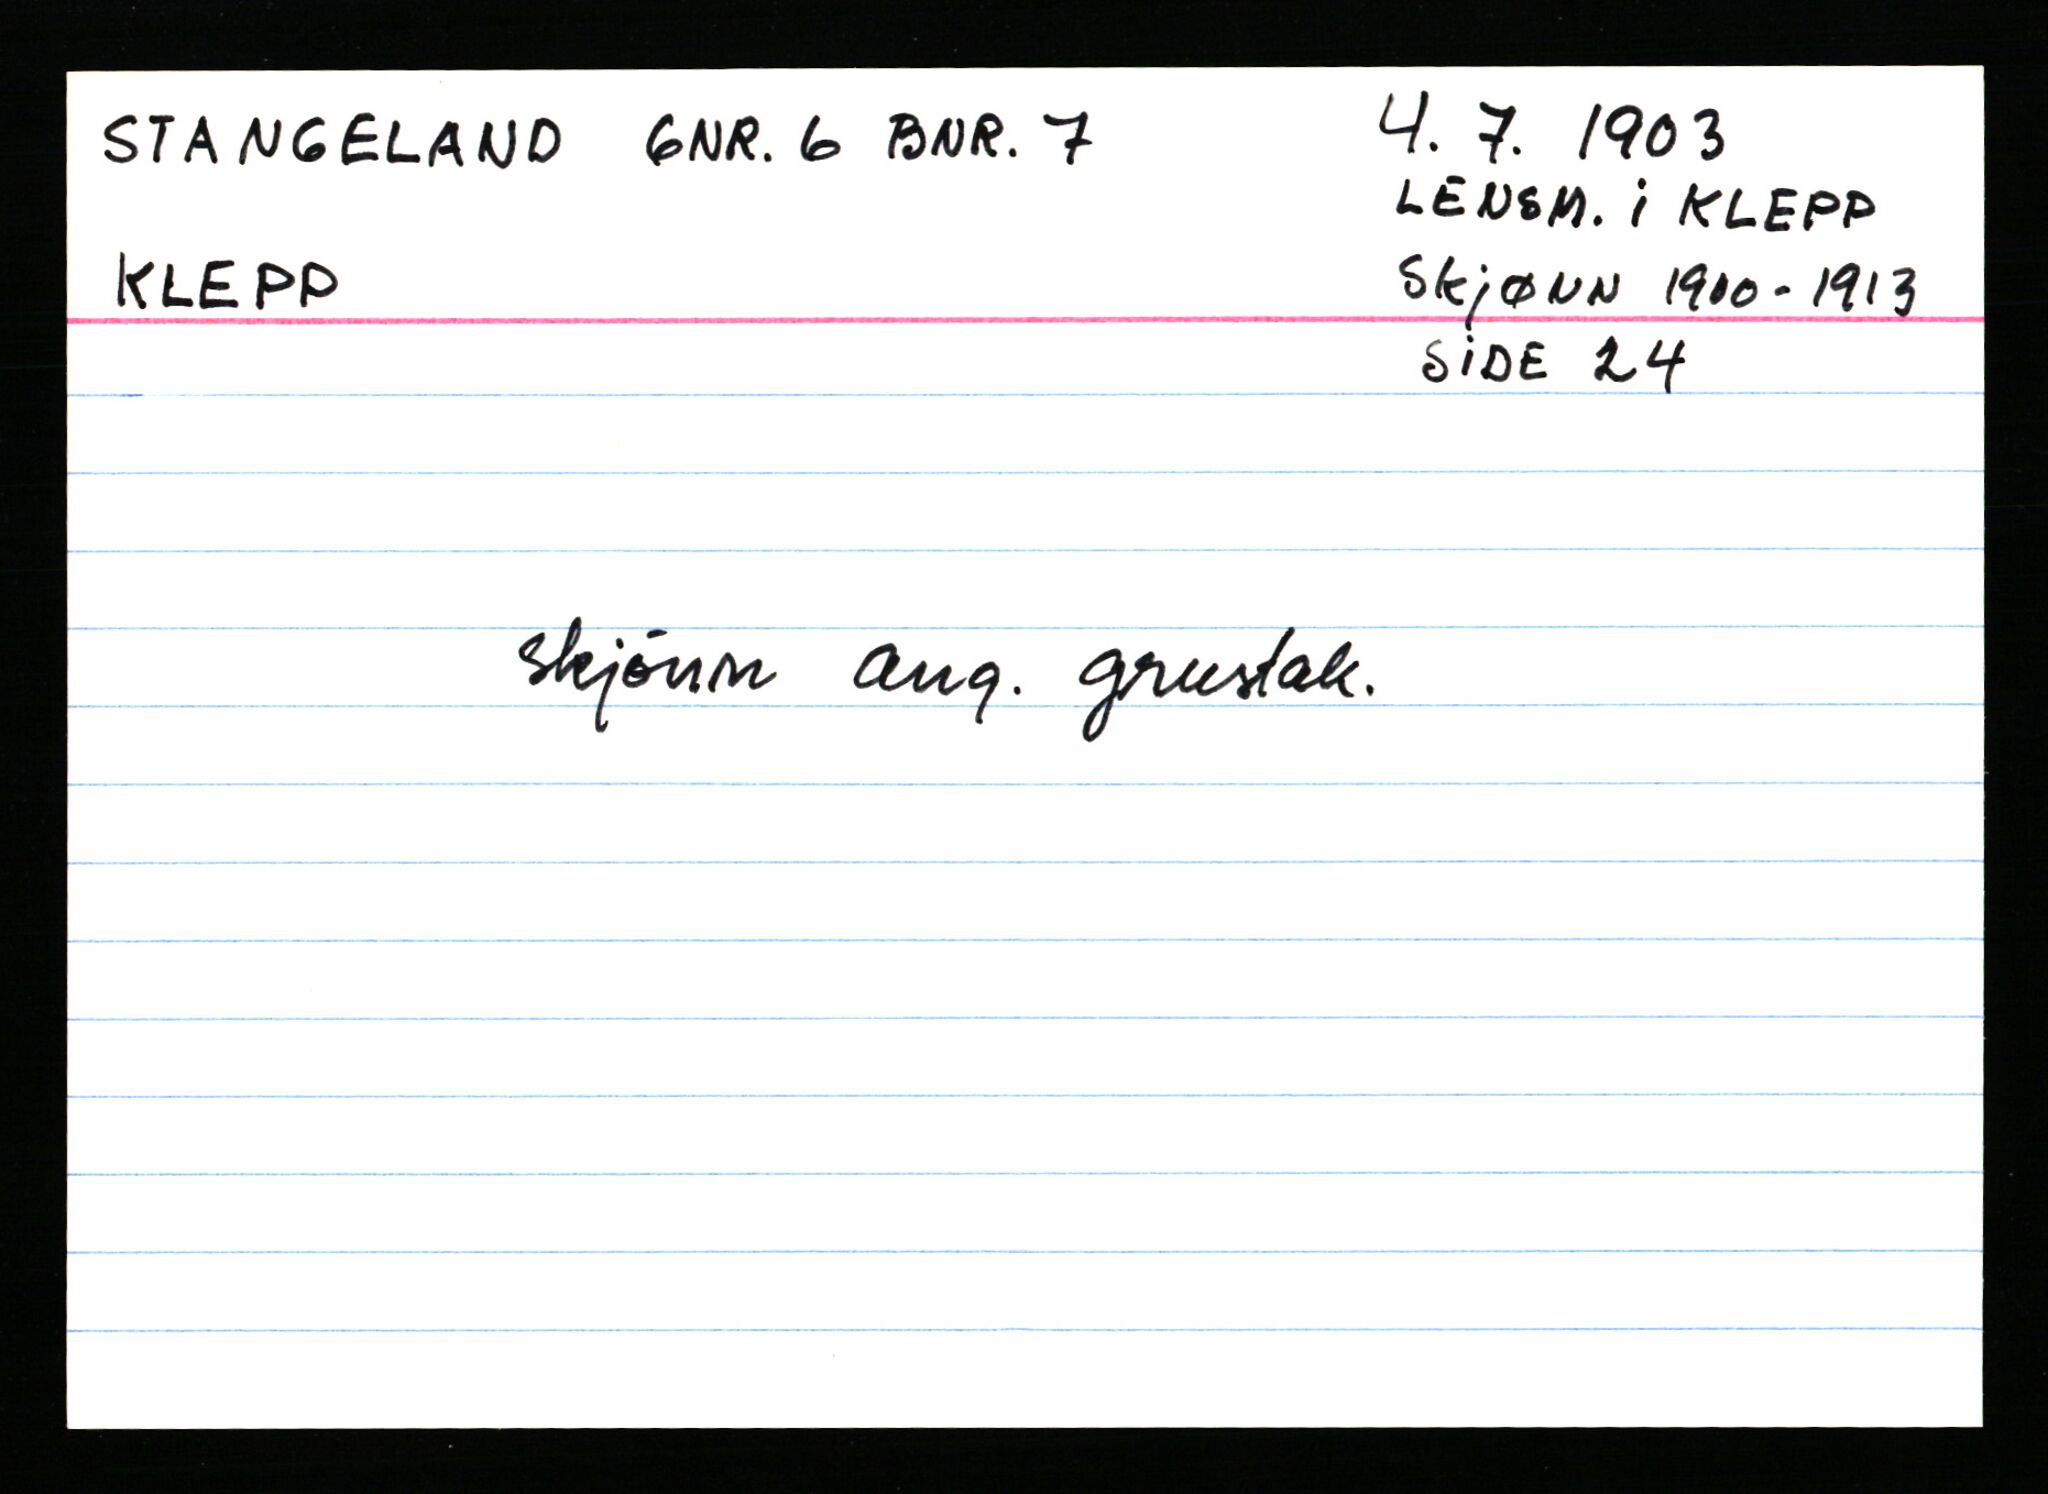 STANGELAND GNR. 6 BNR. 7
4. 7. 1903
LENSM. i KLEPP
KLEPP
Skjønn 1900-1913
SiDE 24
skjönn ang. grustak.